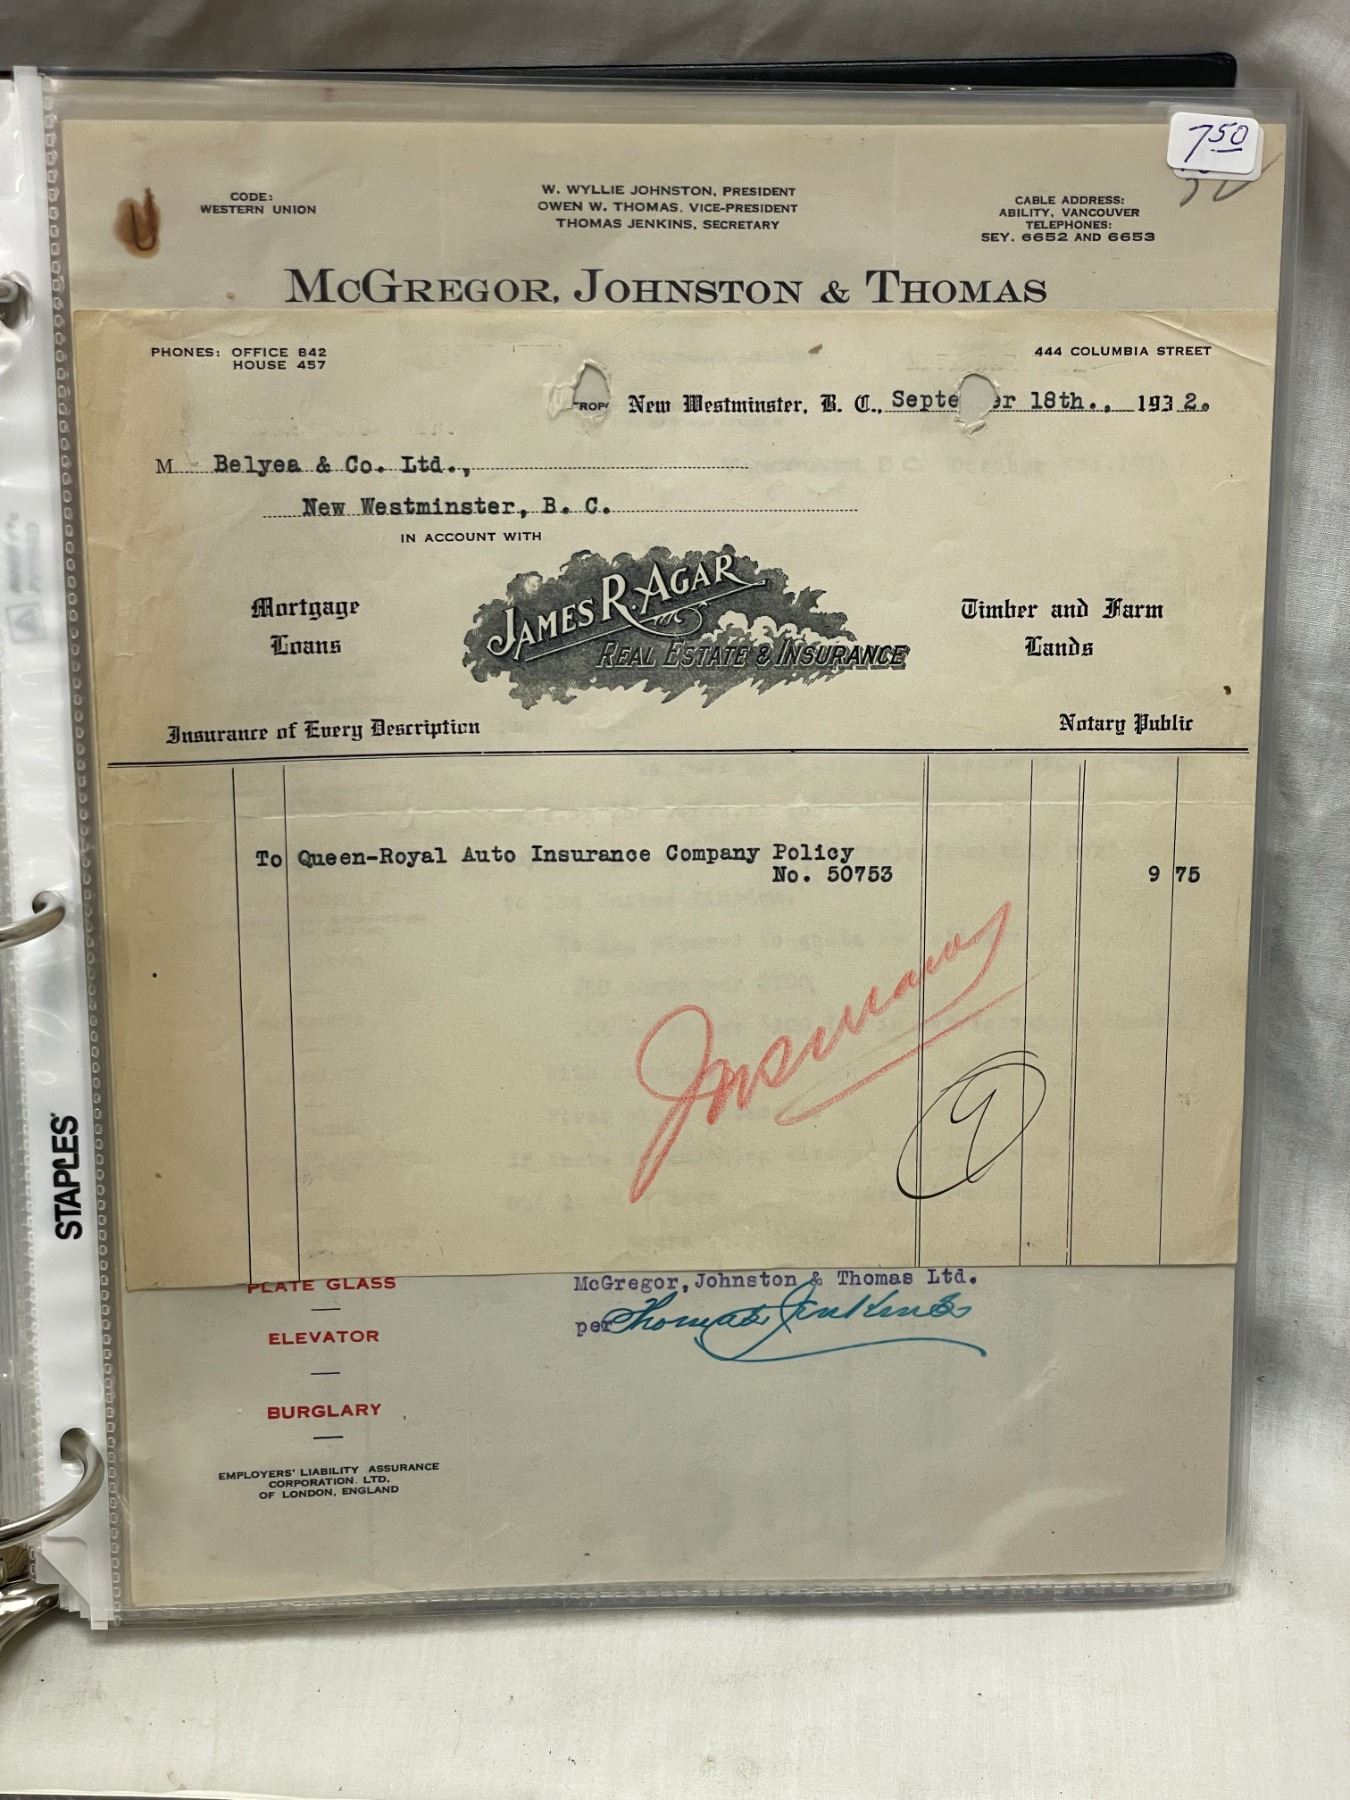 7 50
CODE:
WESTERN UNION
W. WYLLIE JOHNSTON, PRESIDENT
OWEN W. THOMAS, VICE-PRESIDENT
THOMAS JENKINS, SECRETARY
CABLE ADDRESS:
ABILITY, VANCOUVER
TELEPHONES:
SEY. 6652 AND 6653
MCGREGOR, JOHNSTON & THOMAS
PHONES: OFFICE 842
HOUSE 457
444 COLUMBIA STREET
New Westminster, B. C., Septe er 18th., 1932.
M Belyea & Co. Ltd.,
New Westminster, B. C.
IN ACCOUNT WITH
Mortgage
Loans
JAMES R. AGAR
REAL ESTATE & INSURANCE
Timber and Farm
Lands
Insurance of Every Description
Notary Public
To Queen-Royal Auto Insurance Company Policy
No. 50753 9 75
Insurance
9
STAPLES
PLATE GLASS
ELEVATOR
BURGLARY
EMPLOYERS' LIABILITY ASSURANCE
CORPORATION. LTD.
OF LONDON, ENGLAND
McGregor, Johnston & Thomas Ltd.
per Thomas Jenkins